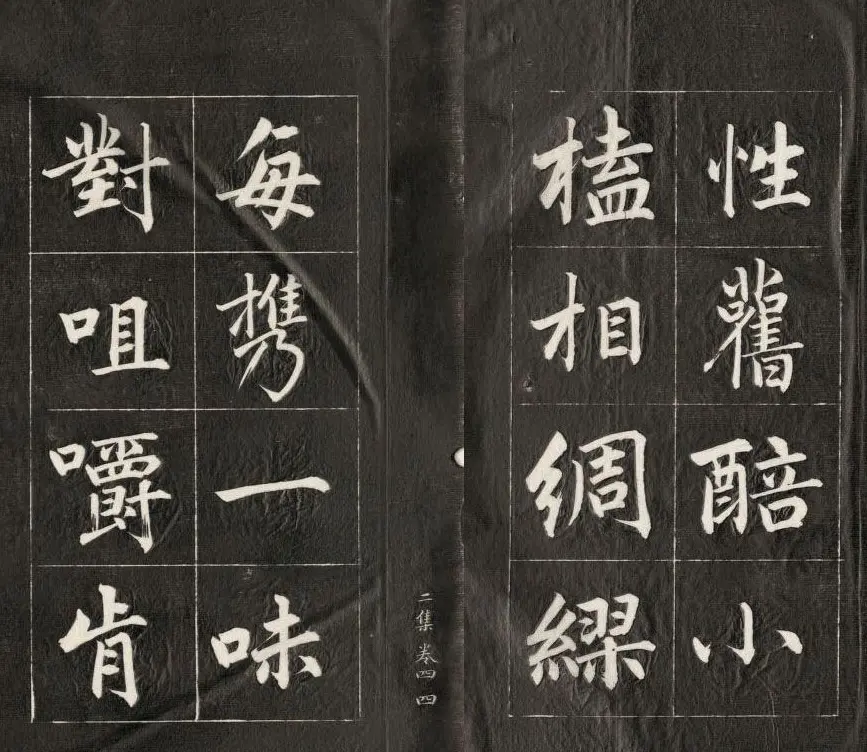 性舊醅小
榼相綢繆
二集 卷四 四
每携一味
對咀嚼肯